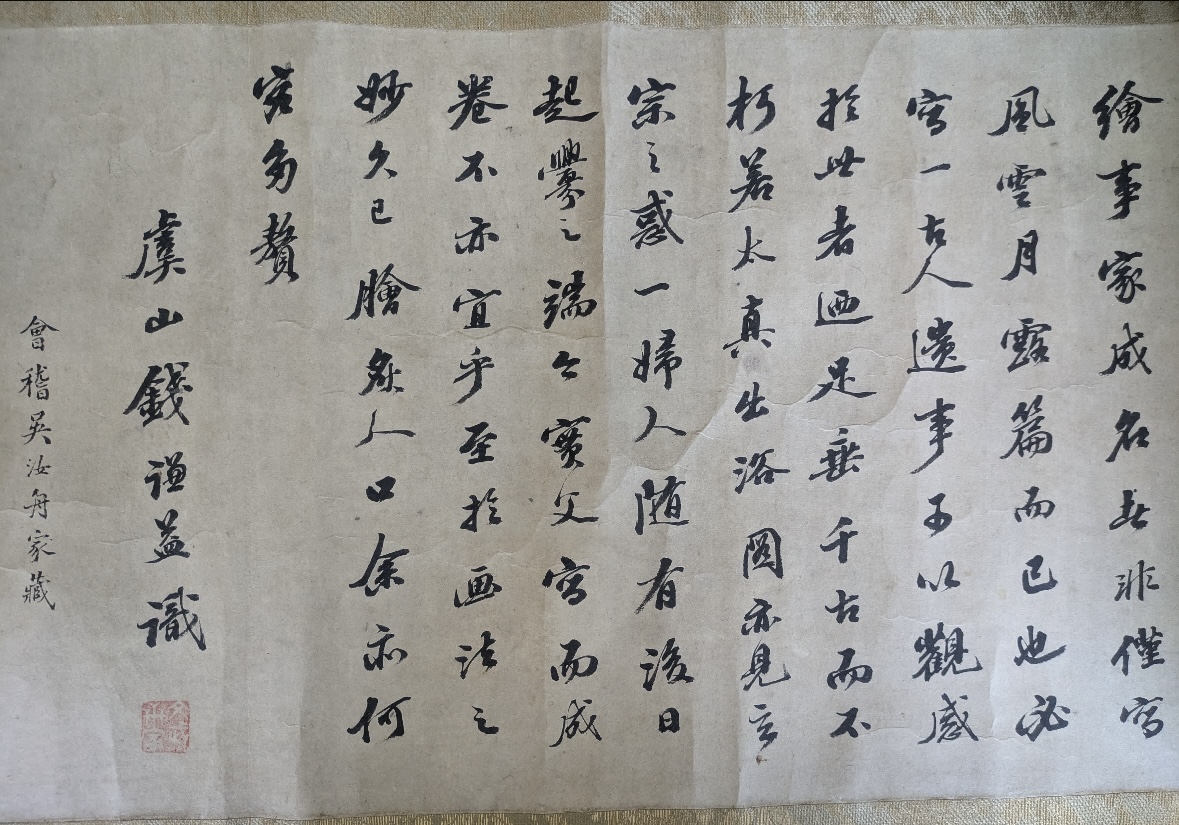 繪事家成名者非僅寫
風雲月露篇而已也必
寫一古人遺事可以觀感
於世者迺足垂千古而不
朽若太真出浴圖亦見玄
宗之惑一婦人随有後日
起釁之端今實父寫而成
卷不亦宜乎至於画法之
妙久已膾炙人口余亦何
容多贅
虞山錢謙益識
會稽吳汝舟家藏